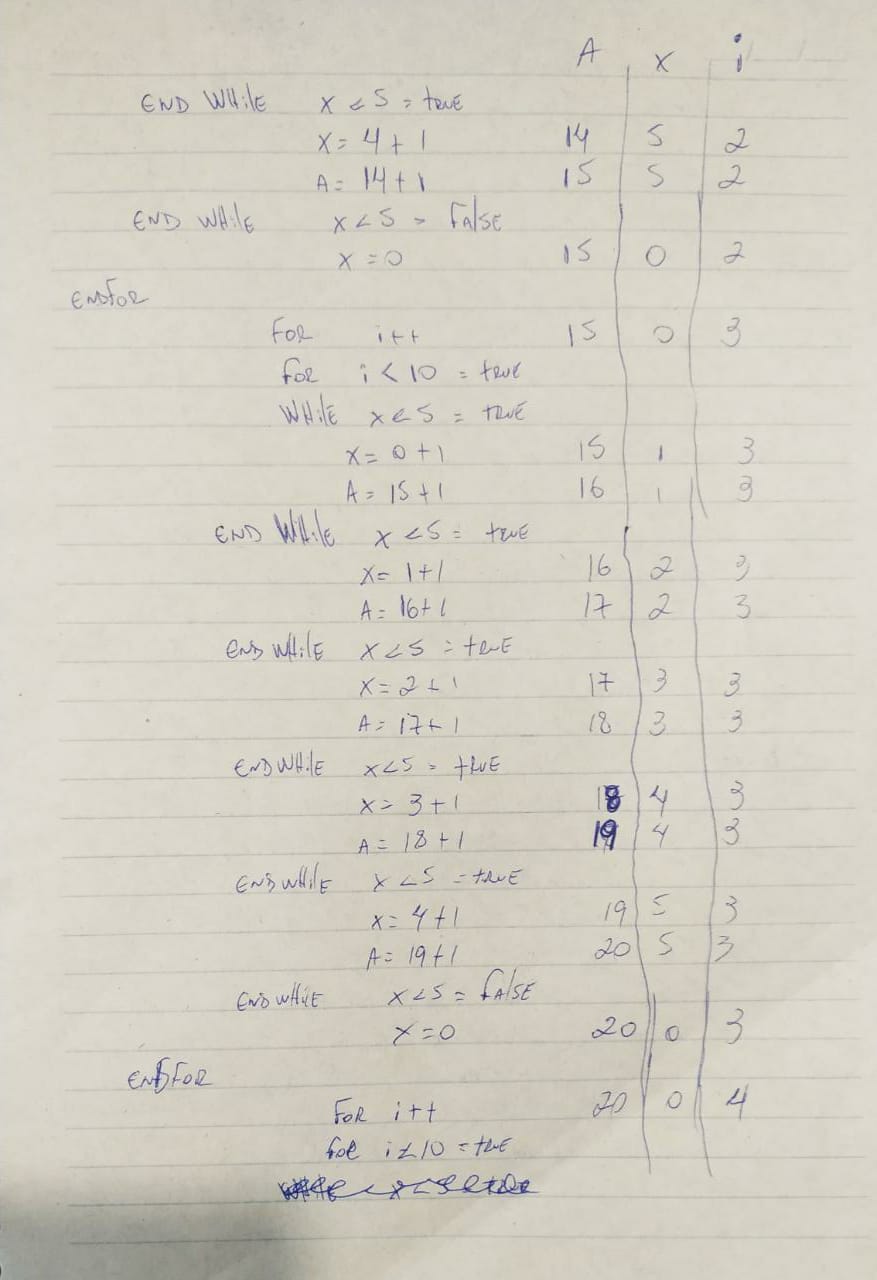 A x i
END WHile x < 5 = true
x = 4 + 1 14 5 2
A = 14 + 1 15 5 2
END WHile x < 5 = FAlSE
x = 0 15 0 2
ENDFOR
FOR i++ 15 0 3
for i < 10 = true
WHilE x < 5 = TRUE
x = 0 + 1 15 1 3
A = 15 + 1 16 1 3
END WHile x < 5 = true
x = 1 + 1 16 2 3
A = 16 + 1 17 2 3
END WHilE x < 5 = trUE
x = 2 + 1 17 3 3
A = 17 + 1 18 3 3
END WHilE x < 5 = trUE
x = 3 + 1 18 4 3
A = 18 + 1 19 4 3
END WHilE x < 5 = trUE
x = 4 + 1 19 5 3
A = 19 + 1 20 5 3
END WHilE x < 5 = fAlSE
x = 0 20 0 3
ENDFOR
FOR i++ 20 0 4
for i < 10 = true